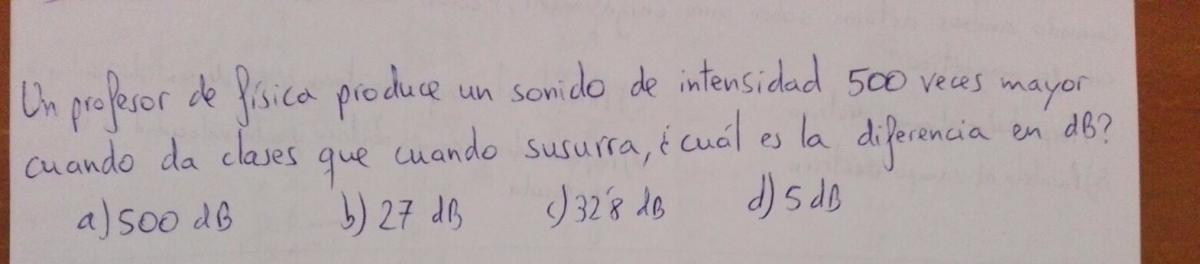 Un profesor de física produce un sonido de intensidad 500 veces mayor
cuando da clases que cuando susurra, ¿cuál es la diferencia en dB?
a) 500 dB b) 27 dB c) 32'8 dB d) 5 dB